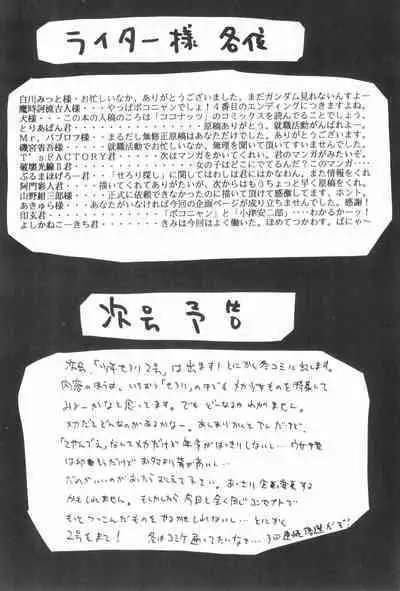 ライター様 各位
白川みっと様・お忙しいなか、ありがとうございました。まだガンダム見れないんすよー
魔時阿流古人様・・・やっぱポコニャンでしょ！４番目のエンディングにつきますよね。
犬様・・・この本の人稿のころは「ココナッツ」のコミックスを読んでることでしょう。
とりあぱん君・・・・・・・・・・・・・・・原稿ありそう。就職活動がんばれよー。
Ｍｒ．パブロフ様・・・まるだし無修正原稿はあなただけでした。ありがとうございます。
磯宮吾吾様・・・・・就職活動でお忙しいなか、無理を聞いて頂いてすいませんでした。
Ｔ'ｓＦＡＣＴＯＲＹ君・・・・・次はマンガをかいてくれい。君のマンガがみたいぞ。
破壊光線Ⅱ君・・・・・・・・・・・・女の子はどこにでてるんだ？このマンガ・・・。
ぷるまほげろー君・・・「せろり探し」に関してはわしは君にはかなわん。また情報をくれ
阿門彩人君・・・描いてくれてありがたいが、次からはもうちょっと早く原稿をくれ。
山野紺三郎様・・・正式に依頼できなかったのに描いて頂けて感激してます。ホント。
あきゅら様・・・あなたがいなければ今回の企画ページが成り立ちませんでした。感謝！
印玄君・・・・・・・・・・・・・「ポコニャン」と「小津安二郎」・・・・わかるかーッ！
よしかねこーきち君・・・・・・・・・きみは今回はよく働いた。ほめてつかわす。ばにゃ〜
次号 予告
次号、「少年せろり2号」は出ます！とにかく冬コミに出します。
内容のほうは、いちおう「せろり」のほかにも メカ少女ものを特集して
みよーかなと思ってます。でも どーなるかわかりません。
メカだと どんなのがあるかなー。あんまりおらんとてんだけど、
かもしれません。もしかしたら 今回と全く同じコンセプトで
もっと つっこんだものを やるかもしれないし… とにかく
2号をまて！